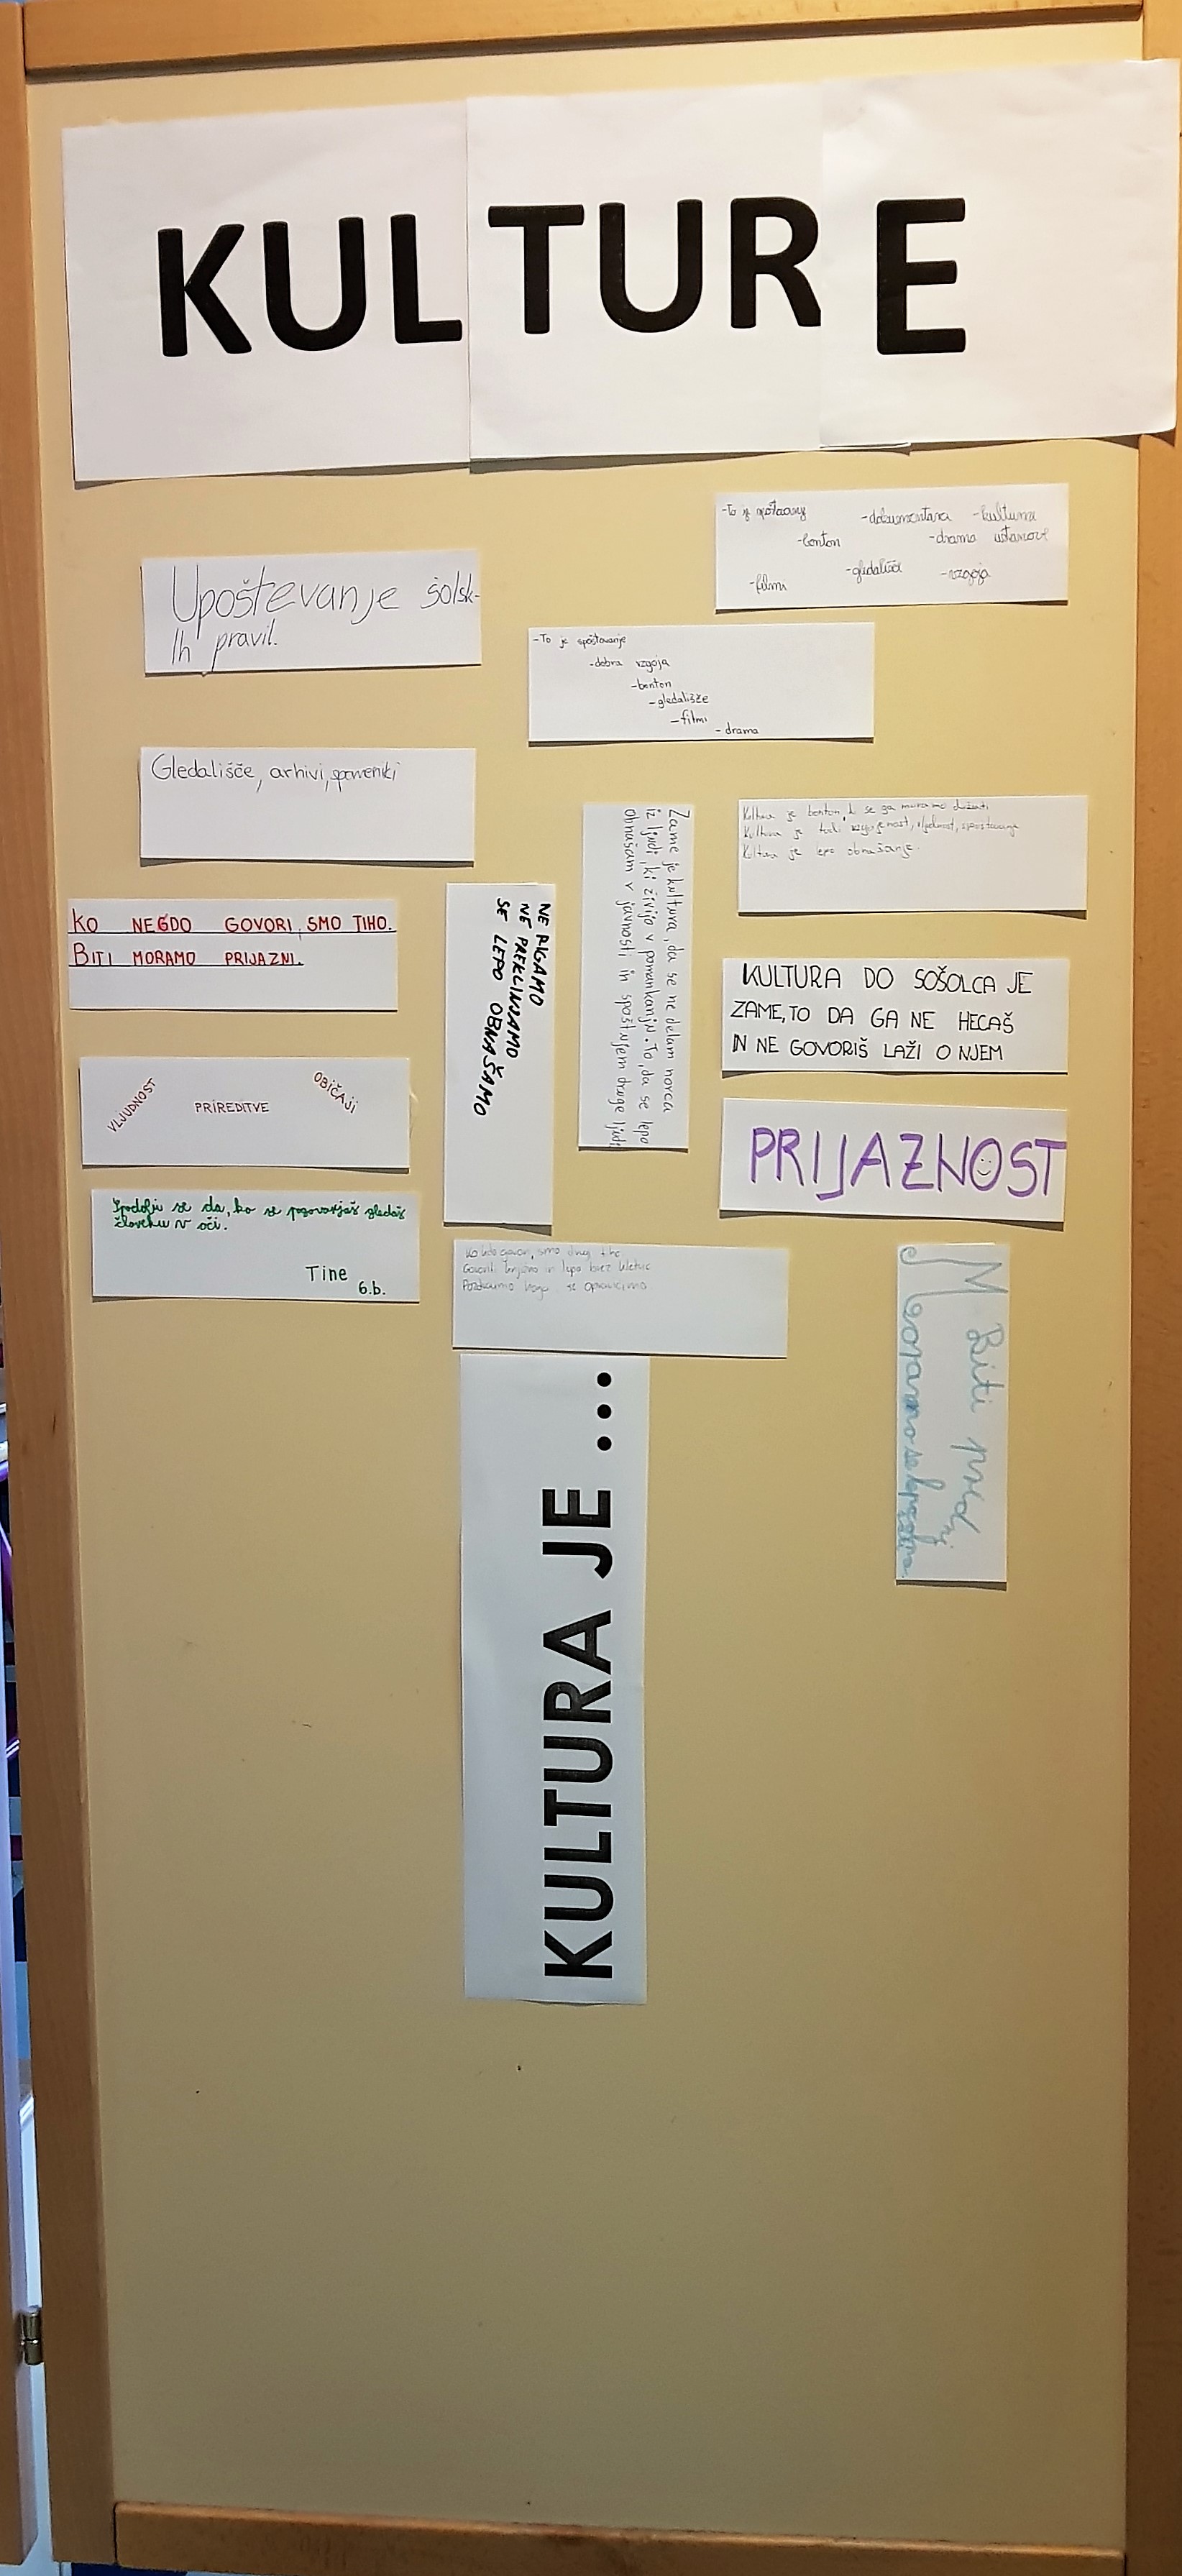 KULTURE
-To je spoštovanje -dokumentara -kulturne
-bonton -drama ustanove
-gledališče -vzgoja
-filmi
Upoštevanje šolsk-
ih pravil.
-To je spoštovanje
-dobra vzgoja
-bonton
-gledališče
-filmi
-drama
Gledališče, arhivi, spomeniki
Kultura je bonton, ki se ga moramo držati
Kultura je tudi vzgojenost, vljudnost, spoštovanje
Kultura je lepo obnašanje.
Zame je kultura, da se ne delam norca
iz ljudi, ki živijo v pomankanju. To, da se lepo
obnašam v javnosti in spoštujem druge ljudi
NE RIGAMO
NE PREKLINJAMO
SE LEPO OBNAŠAMO
KO NEGDO GOVORI, SMO TIHO.
BITI MORAMO PRIJAZNI.
KULTURA DO SOŠOLCA JE
ZAME, TO DA GA NE HECAŠ
IN NE GOVORIŠ LAŽI O NJEM
VLJUDNOST PRIREDITVE OBIČAJI
PRIJAZNOST
Spodobi se da, ko se pogovarjaš gledaš
človeku v oči.
Tine
6.b.
Ko kdo govori, smo drugi tiho
Govoriti knjižno in lepo brez kletvic
se opravičimo
Biti
Moramo se lepo
KULTURA JE ...